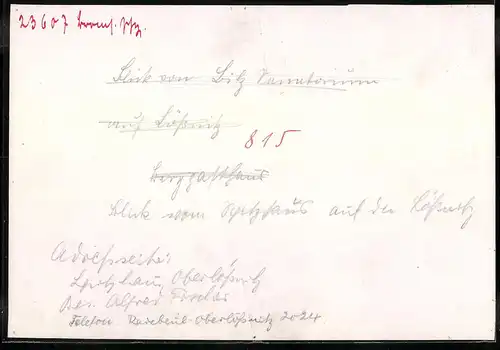 23607 Broms. Ptz.
Blick vom Bilz Sanatorium
auf Lößnitz
815
Berggasthaus
Blick vom Spitzhaus auf die Lößnitz
Adreßseite:
Spitzhaus, Oberlößnitz
Bes. Alfred Fischer
Telefon Radebeul-Oberlößnitz 2024